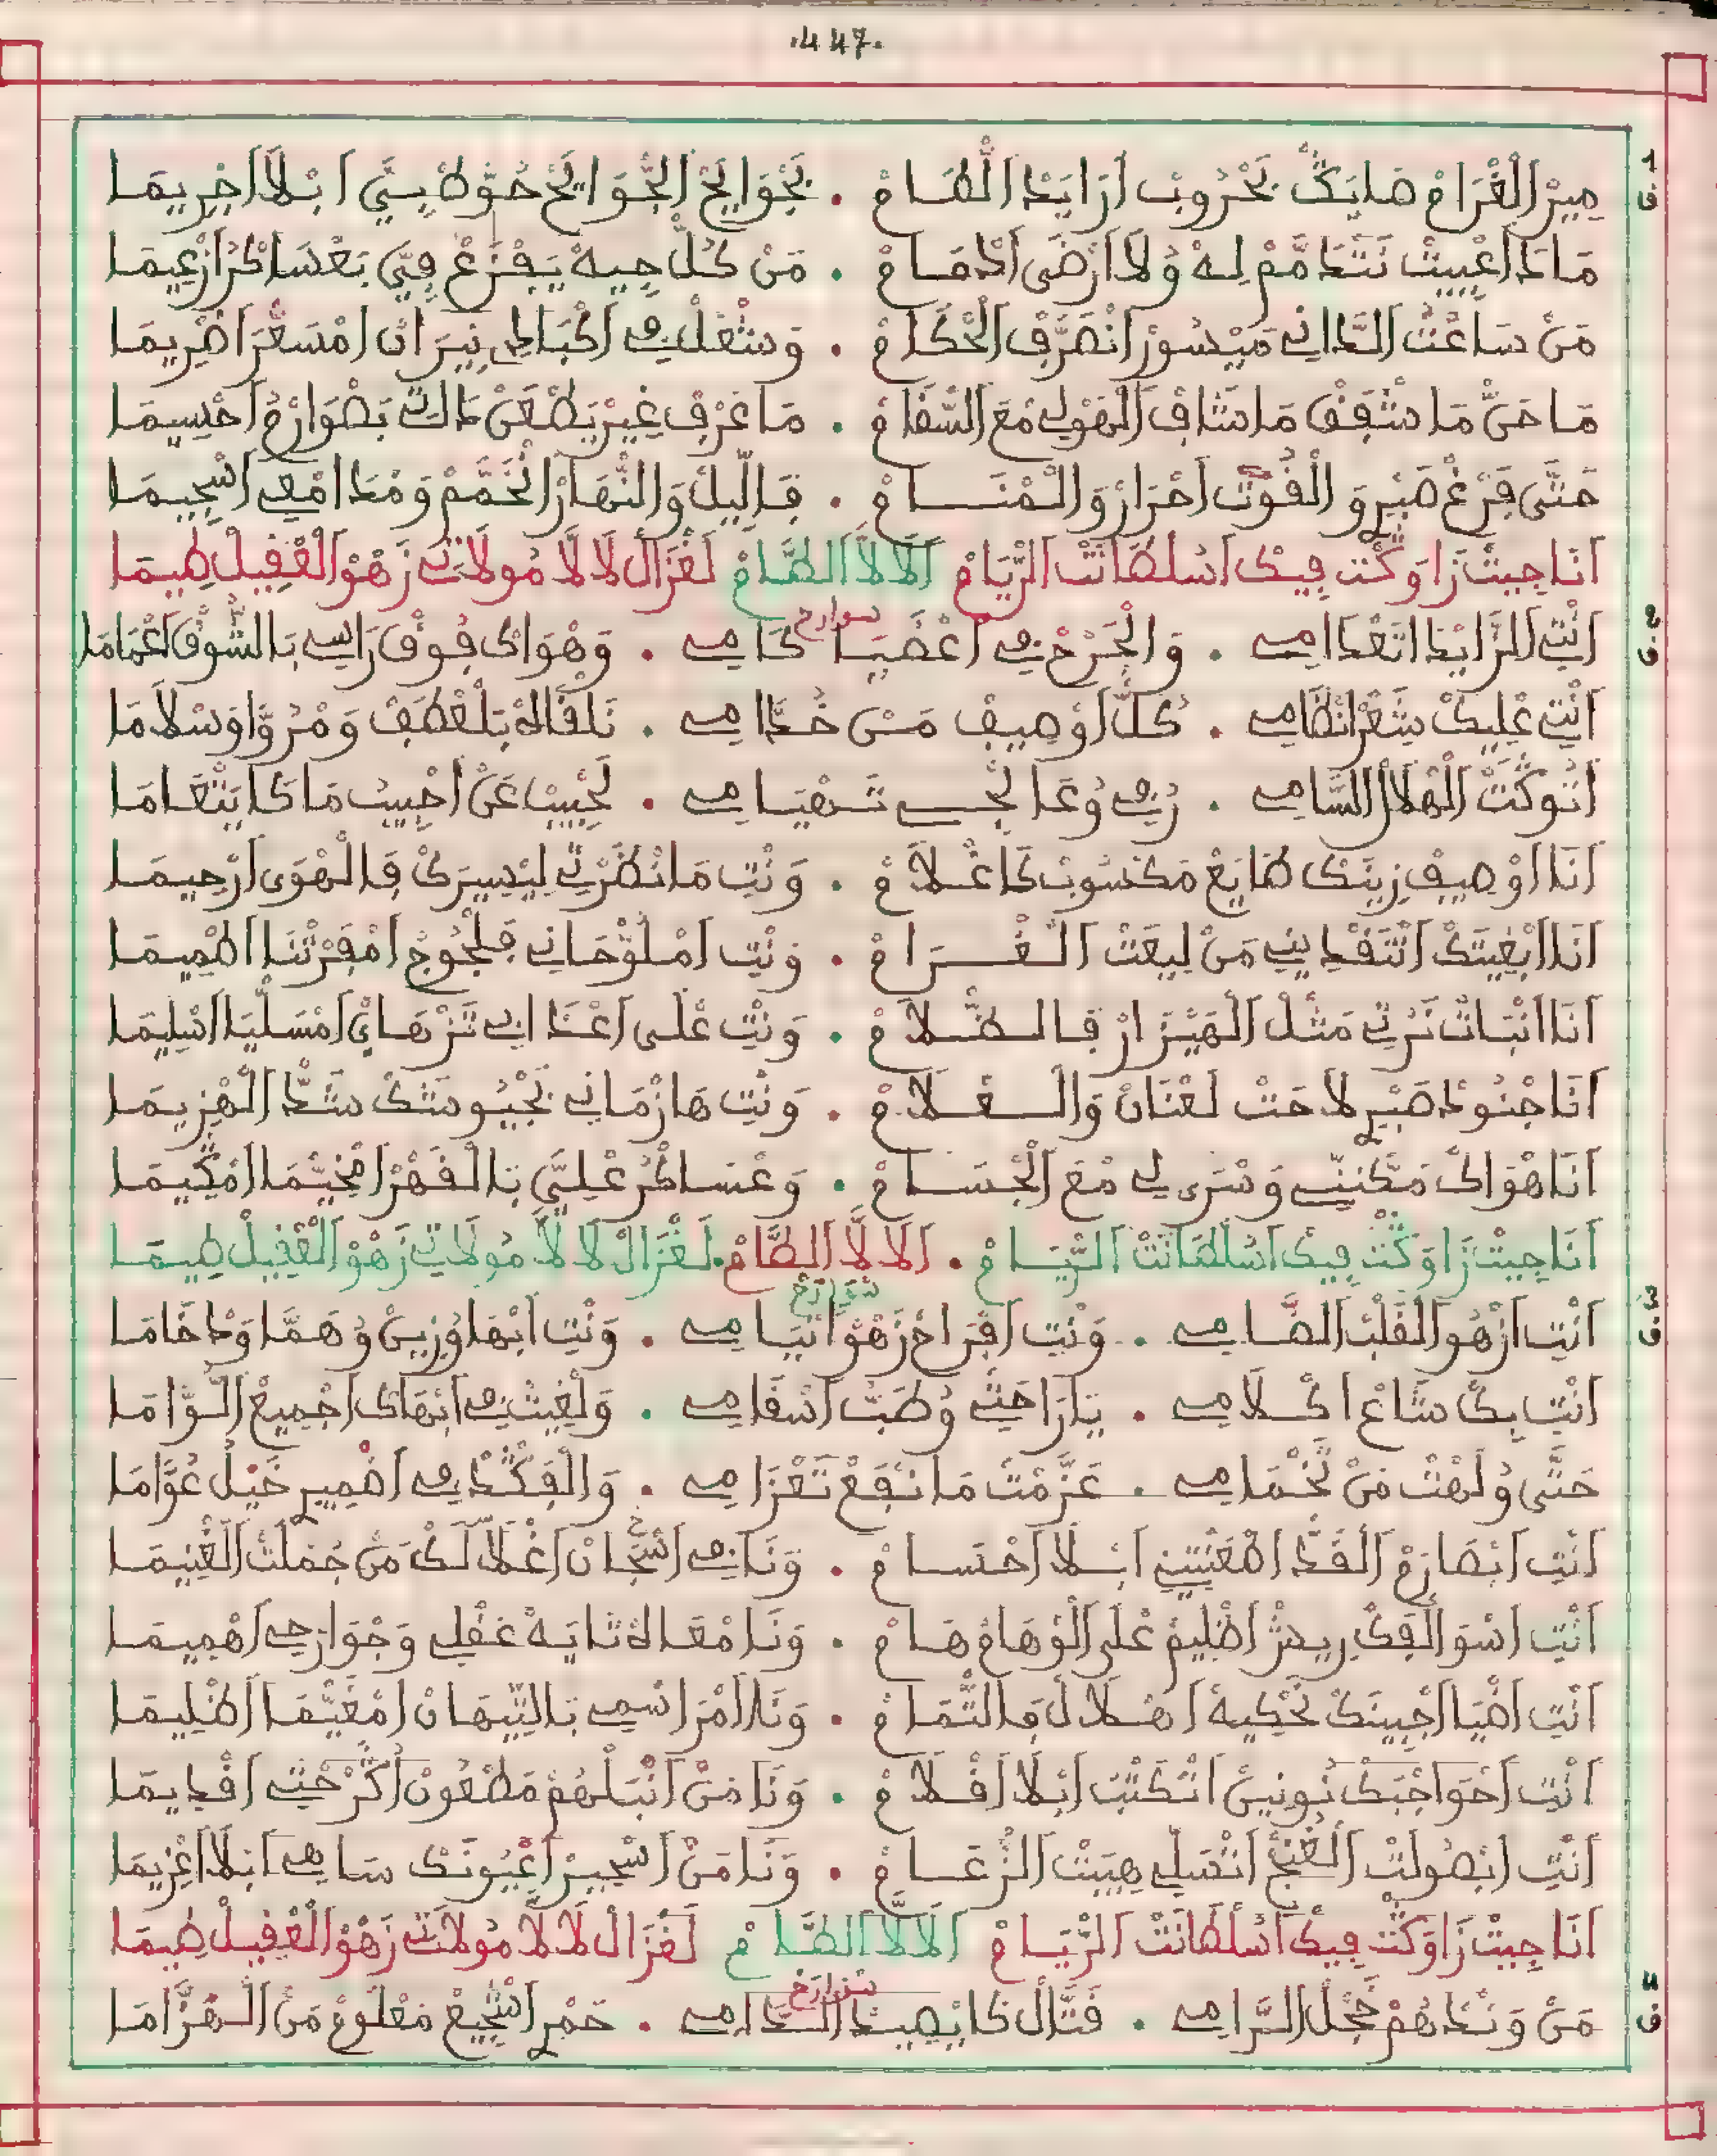 .447.
ق1
مِيرْ اَلْغْرَامْ صَايَݣْ بَحْرُوبْ اَزَايَدْ اَلطَّامْ . بَجْوَايَحْ اَلجّْوَايَحْ حَوَّطْ بِيَّ اَبْلَا اَجْرِيمَا
مَادَا اَعْيِيتْ نَتْدَمَّمْ لِهْ وُلَا اَرْضَى اَدْمَامْ . مَنْ كُلّْ جِيهْ يَفْزَعْ فِيَّ بَعْسَاكْرْ اَزْعِيمَا
مَنْ سَاعْتْ اَلدَّانِي مَيْسُورْ اَنْصَرَّفْ اَلحْكَامْ . وَشْعْلْ فِي اَكْبَادِي نِيرَانْ اَمْسَعّْرَ اَضْرِيمَا
مَاحَنّْ مَا شْفَقْ مَاشَافْ اَلْهَوْلِي مْعَ السّْقَامْ . مَاعْرَفْ غِيرْ يَطْعَنْ دَاتِي بَصْوَارْمْ اَحْسِيمَا
حَتَّى فْرَغْ صَبْرِي وَ الْقُوتْ اَحْرَارْ وَالْمْنَامْ . فَاللِّيلْ وَالنّْهَارْ اَنْخَمَّمْ وَمْدَامْعِي اَسْجِيمَا
اَنَا جِيتْ زَاوَݣْتْ فِيكْ اَسْلْطَانْتْ اَلرّْيَامْ اَلَالَّا اَلطَّامْ لَغْزَالْ لَالَّا مُولَاتِي زَهْوْ اَلْعْقِيلْ طِيمَا
سوارح
ق2
اَنْتِ اَلزَّايْدَا اتْعْدَامِي . وَالْجَرْحْ فِي اَعْضَايَا كَامِي . وَهْوَاكْ فُوقْ رَاسِي بَالشُّوقْ اَعْمَامَا
اَنْتِ عْلِيكْ شَعْرْ اَنْظَامِي . كُلّْ اَوْصِيفْ مَنْ خُدَّامِي . تَلْقَاهْ بَلْعْطَفْ وَمْرُوَّا وَسْلَامَا
اَنْتُو كُنْتْ اَلْهْلَالْ اَلسَّامِي . رَفِي وُعَالْجِي تَهْيَامِي . لَحْبِيبْ عَنْ اَحْبِيبْ مَا كَايَتْعَامَا
اَنَا اَوْصِيفْ زِينَكْ طَايَعْ مَكْسُوبْ كَاغْلَامْ . وَنْتِ مَا نْظَرْتِ لْيْسِيرَكْ فَالْهْوَى اَرْحِيمَا
اَنَا اَبْغِيتَكْ اَتْفَدِينِي مَنْ لِيعَتْ اَلْغْرَامْ . وَنْتِ اَمْلَوْحَانِي فَلْجُوجْ اَمْفَرْتْنَا اَطْمِيمَا
اَنَا اَنْبَاتْ نَرْتِي مَتْلْ اَلْهِيزَارْ فَالظّْلَامْ . وَنْتِ عْلَى اَعْدَابِي تَزْهَايْ اَمْسَلْيَا اَسْلِيمَا
اَنَا جْنُودْ صَبْرِي لَاحَتْ لَعْنَانْ وَالْعْلَامْ . وَنْتِ هَازْمَانِي بَجْيُوشَكْ شَدّْ اَلْهْزِيمَا
اَنَا هْوَاكْ مَكَّنِّي وَسْرَى لِي مْعَ اَلْجْسَامْ . وَعْسَاكْرُ عْلِيَّ بَالْقَهْرْ اَمْخَيّْمَا اَمْقِيمَا
اَنَا جِيتْ زَاوَݣْتْ فِيكْ اَسْلْطَانْتْ اَلرّْيَامْ . اَلَالَّا اَلطَّامْ . لَغْزَالْ لَالَّا مُولَاتِي زَهْوْ اَلْعْقِيلْ طِيمَا
سْوَارَحْ
ق3
اَنْتِ اَزْهُو اَلْقَلْبْ اَلضَّامِي . وَنْتِ اَفْرَاحْ زَهْوْ اَيَّامِي . وَنْتِ اَبْهَا وُزِينْ وُهَمَّا وَدْخَامَا
اَنْتِ بِكْ شَاعْ اَكْلَامِي . يَارَاحْتِي وُطَبّْ اَسْقَامِي . وَلْغِيتْ فِي اَبْهَاكْ اَجْمِيعْ اَللُّوَّامَا
حَتَّى وُلَهْتْ مَنْ تَخْمَامِي . عَزَّمْتْ مَا نْفَعْ تَعْزَامِي . وَالْفَكْدْ فِي اَضْمِيرِي خَيْلُ عُوَّامَا
اَنْتِ اَبْصَارَمْ اَلْقَدّْ اَطْعَنْتِينِي اَبْلَا اَحْسَامْ . وَنَا فِي اَشْجَانْ اَغْلَالَكْ مَنْ جُمْلَتْ اَلْغْنِيمَا
اَنْتِ اَسْوَالْفَكْ رِيشْ اَظْلِيمْ عْلَى اَلْوْهَامْ هَامْ . وَنَا مْعَاهْ تَايَهْ عَقْلِي وَجْوَارْحِي اَهْمِيمَا
اَنْتِ اَضْيَا اَجْبِينَكْ تَحْكِيهْ اَهْلَالْ فَالتّْمَامْ . وَنَا اَمْرَاسْمِي بَالتِّيهَانْ اَمْغَيّْمَا اَظْلِيمَا
اَنْتِ اَحْوَاجْبَكْ نُونِينْ اَتْكَتْبَتْ اَبْلَا اَقْلَامْ . وَنَا مَنْ اَنْبَلْهُمْ مَطْعُونْ اَكْرَحْتِي اَقْدِيمَا
اَنْتِ اَبْصُولَتْ اَلْغُنْجْ اَتْسَلِّي هِيبَتْ اَلزّْعَامْ . وَنَا مَنْ اَسْحِيرْ اَعْيُونَكْ سَاهِي اَبْلَا اَعْزِيمَا
اَنَا جِيتْ زَاوَݣْتْ فِيكْ اَسْلْطَانْتْ اَلرّْيَامْ اَلَالَّا اَلطَّامْ لَغْزَالْ لَالَّا مُولَاتِي زَهْوْ اَلْعْقِيلْ طِيمَا
سْوَارَحْ
ق4
مَنْ وَنْدْهُمْ خْجَلْ اَلرَّامِي . قَتَّالْ كَايْصِيدْ اَلدَّامِي . حَمْرِي اَشْجِيعْ مَعْلُومْ مَنْ اَلْهُزَّامَا